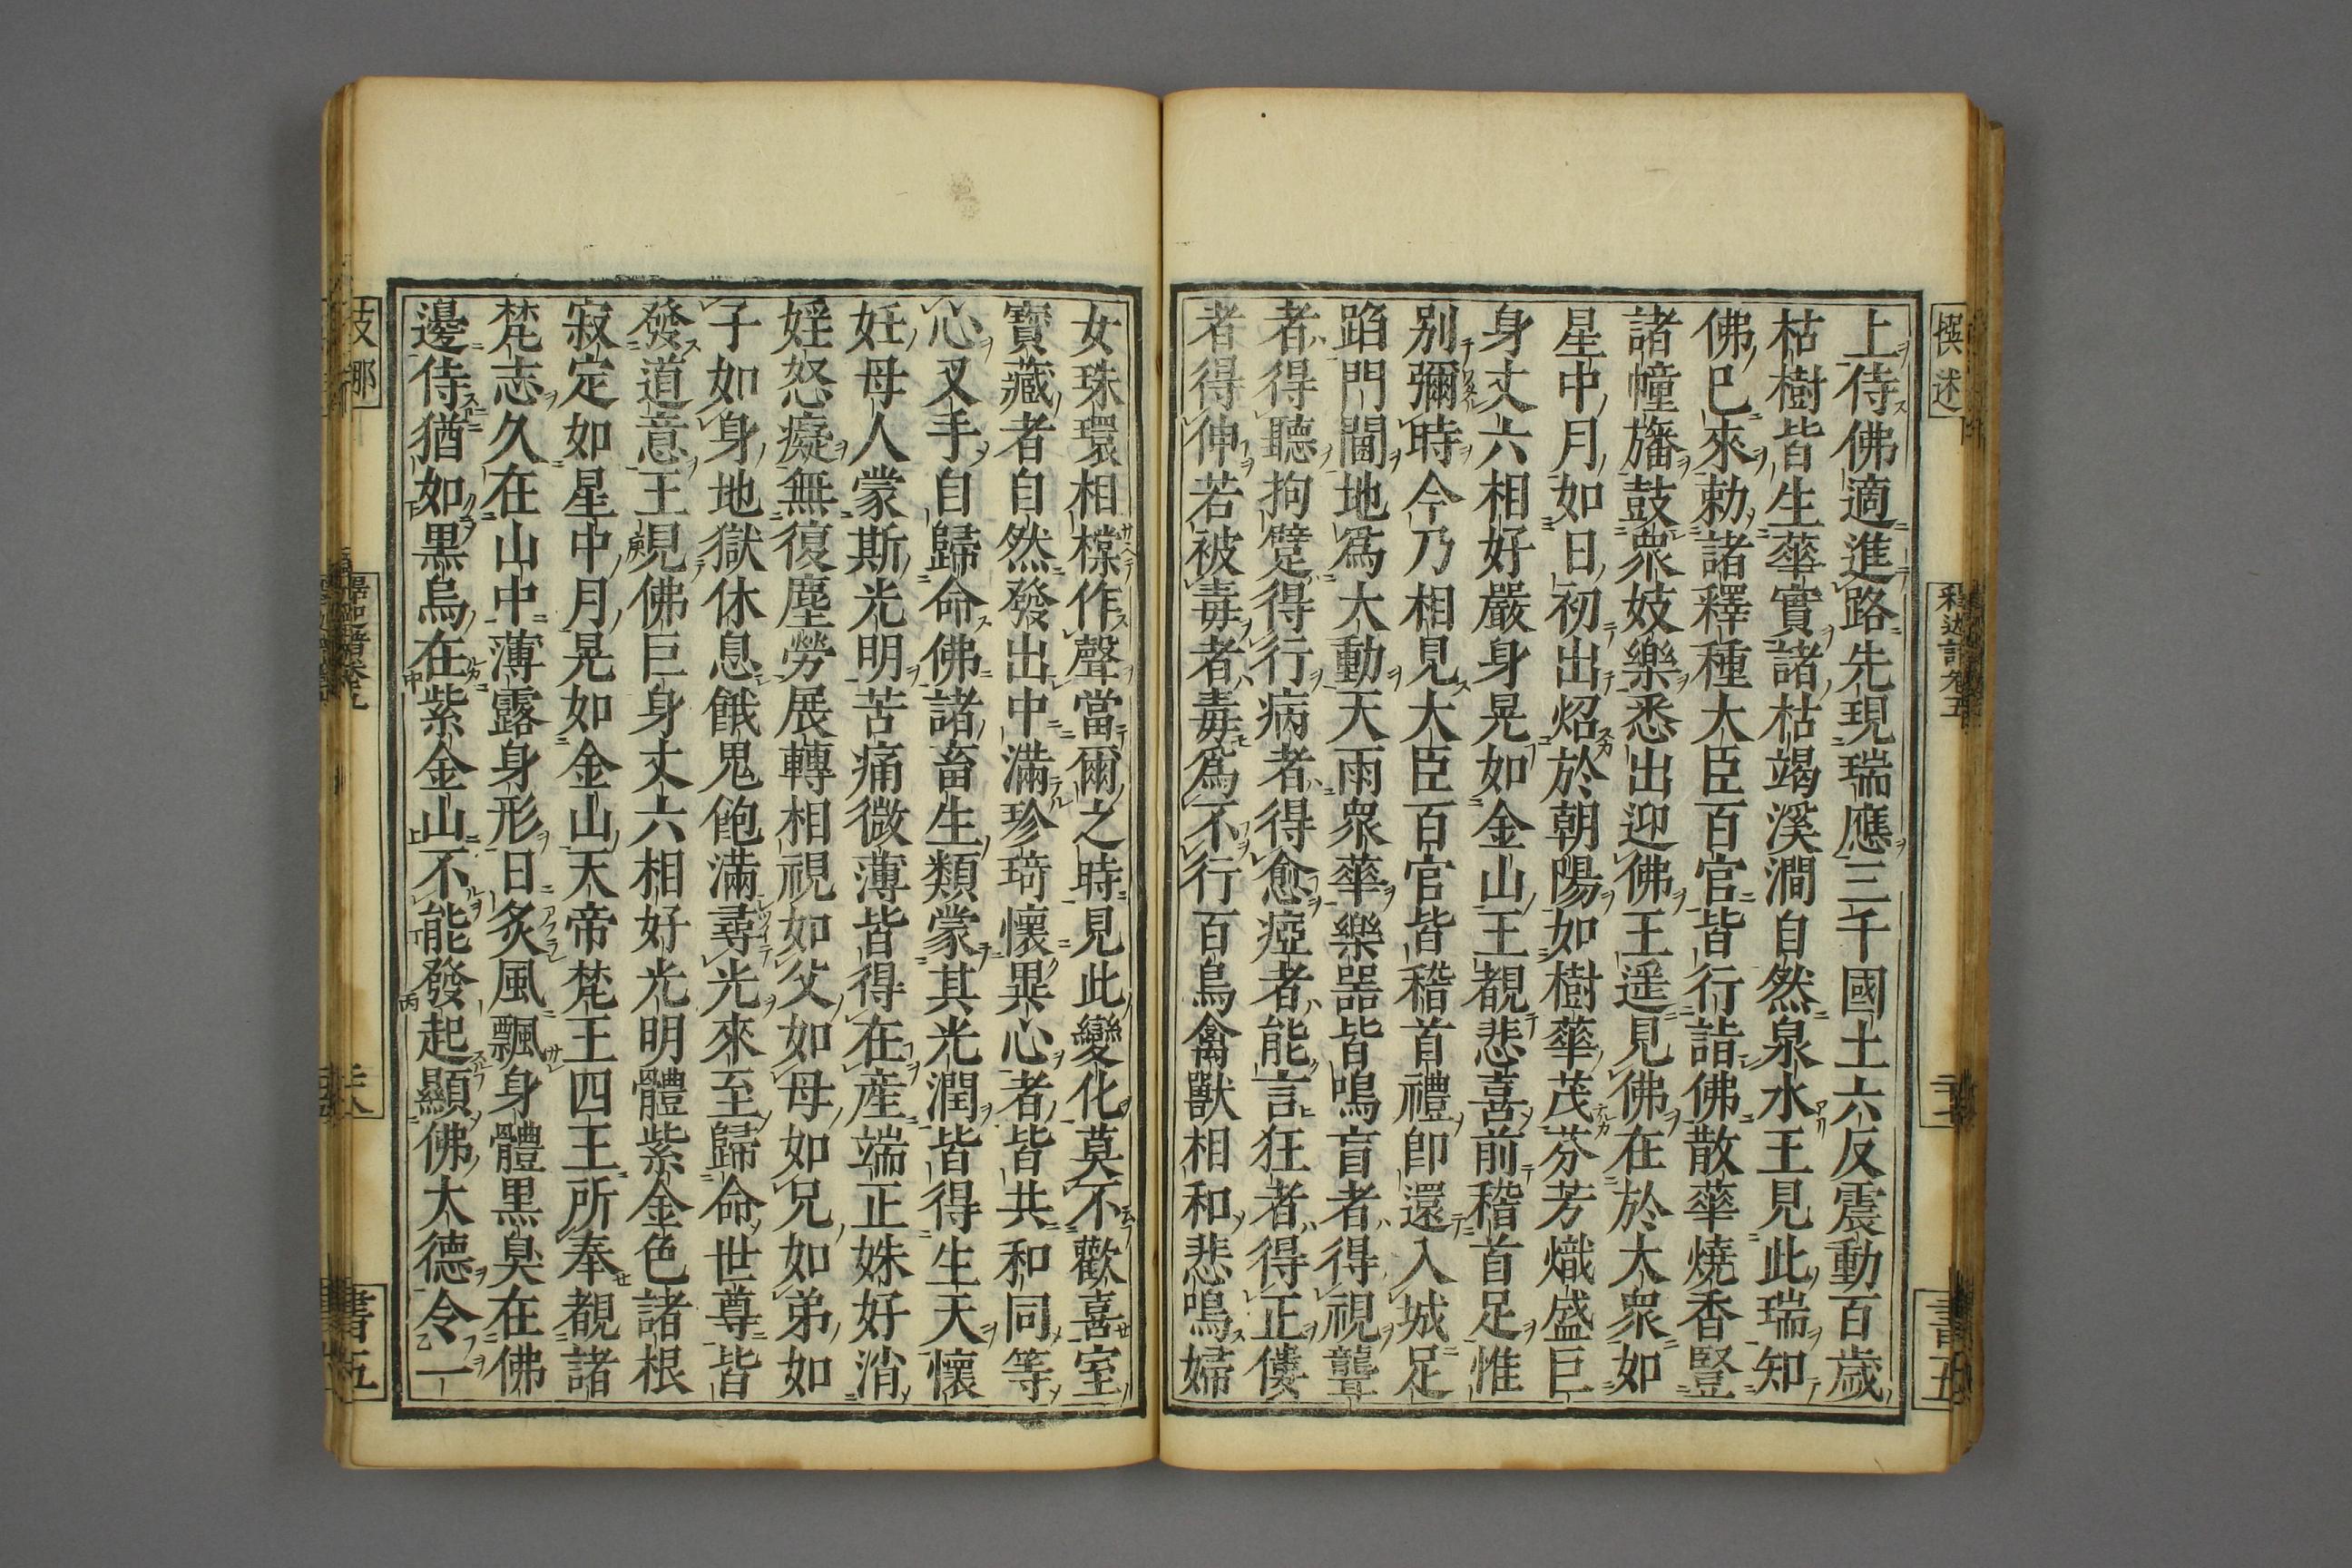 撰述
上侍佛適進路先現瑞應三千國土六反震動百歲
枯樹皆生華實諸枯竭溪澗自然泉水王見此瑞知
佛已來勅諸釋種大臣百官皆行詣佛散華燒香豎
諸幢旛鼓衆妓樂悉出迎佛王遥見佛在於大衆如
星中月如日初出炤於朝陽如樹華茂芬芳熾盛巨
身丈六相好嚴身晃如金山王覩悲喜前稽首足惟
別彌時今乃相見大臣百官皆稽首禮即還入城足
蹈門閫地爲大動天雨衆華樂器皆鳴盲者得視聾
者得聽拘躄得行病者得愈瘂者能言狂者得正僂
者得伸若被毒者毒爲不行百鳥禽獸相和悲鳴婦
女珠環相樘作聲當爾之時見此變化莫不歡喜室
寶藏者自然發出中滿珍琦懷異心者皆共和同等
心叉手自歸命佛諸畜生類蒙其光潤皆得生天懷
妊母人蒙斯光明苦痛微薄皆得在産端正姝好消
婬怒癡無復塵勞展轉相視如父如母如兄如弟如
子如身地獄休息餓鬼飽滿尋光來至歸命世尊皆
發道意王見佛巨身丈六相好光明體紫金色諸根
寂定如星中月晃如金山天帝梵王四王所奉覩諸
梵志久在山中薄露身形日炙風飄身體黑臭在佛
邊侍猶如黑烏在紫金山不能發起顯佛大德令一
書五